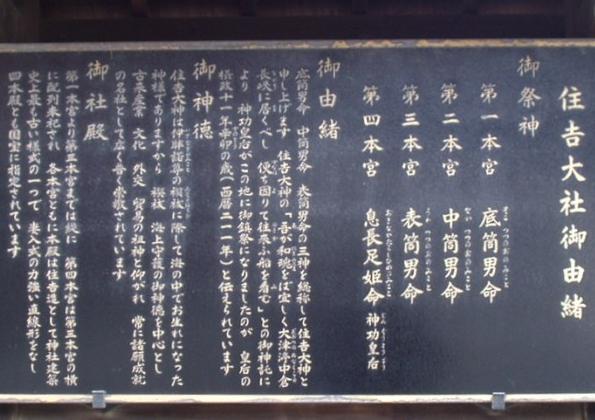 住吉大社御由緒
御祭神
第一本宮 底筒男命 そこつつのおのみこと
第二本宮 中筒男命 なかつつのおのみこと
第三本宮 表筒男命 うわつつのおのみこと
第四本宮 息長足姫命 おきながたらしひめのみこと 神功皇后 じんぐうこうごう
御由緒
底筒男命 中筒男命 表筒男命の三神を総称して住吉大神と
申し上げます 住吉大神の「吾が和魂をば宜しく大津渟中倉
長峡に居くべし 便ち因りて往来ふ船を看む」との御神託に
より 神功皇后がこの地に御鎮祭になりましたのが 皇后の
摂政十一年辛卯の歳(西暦二一一年)と伝えられています
御神徳
住吉大神は伊弉諾尊の禊祓に際して海の中でお生れになった
神様でありますから 禊祓 海上守護の御神徳を中心とし
古来産業 文化 外交 貿易の祖神と仰がれ 常に諸願成就
の名社として広く普く崇敬されています
御社殿
第一本宮より第三本宮までは縦に 第四本宮は第三本宮の横
に配列奉祀され 各本宮ともに本殿は住吉造として神社建築
史上最も古い様式の一つで 妻入式の力強い直線形をなし
四本殿とも国宝に指定されています